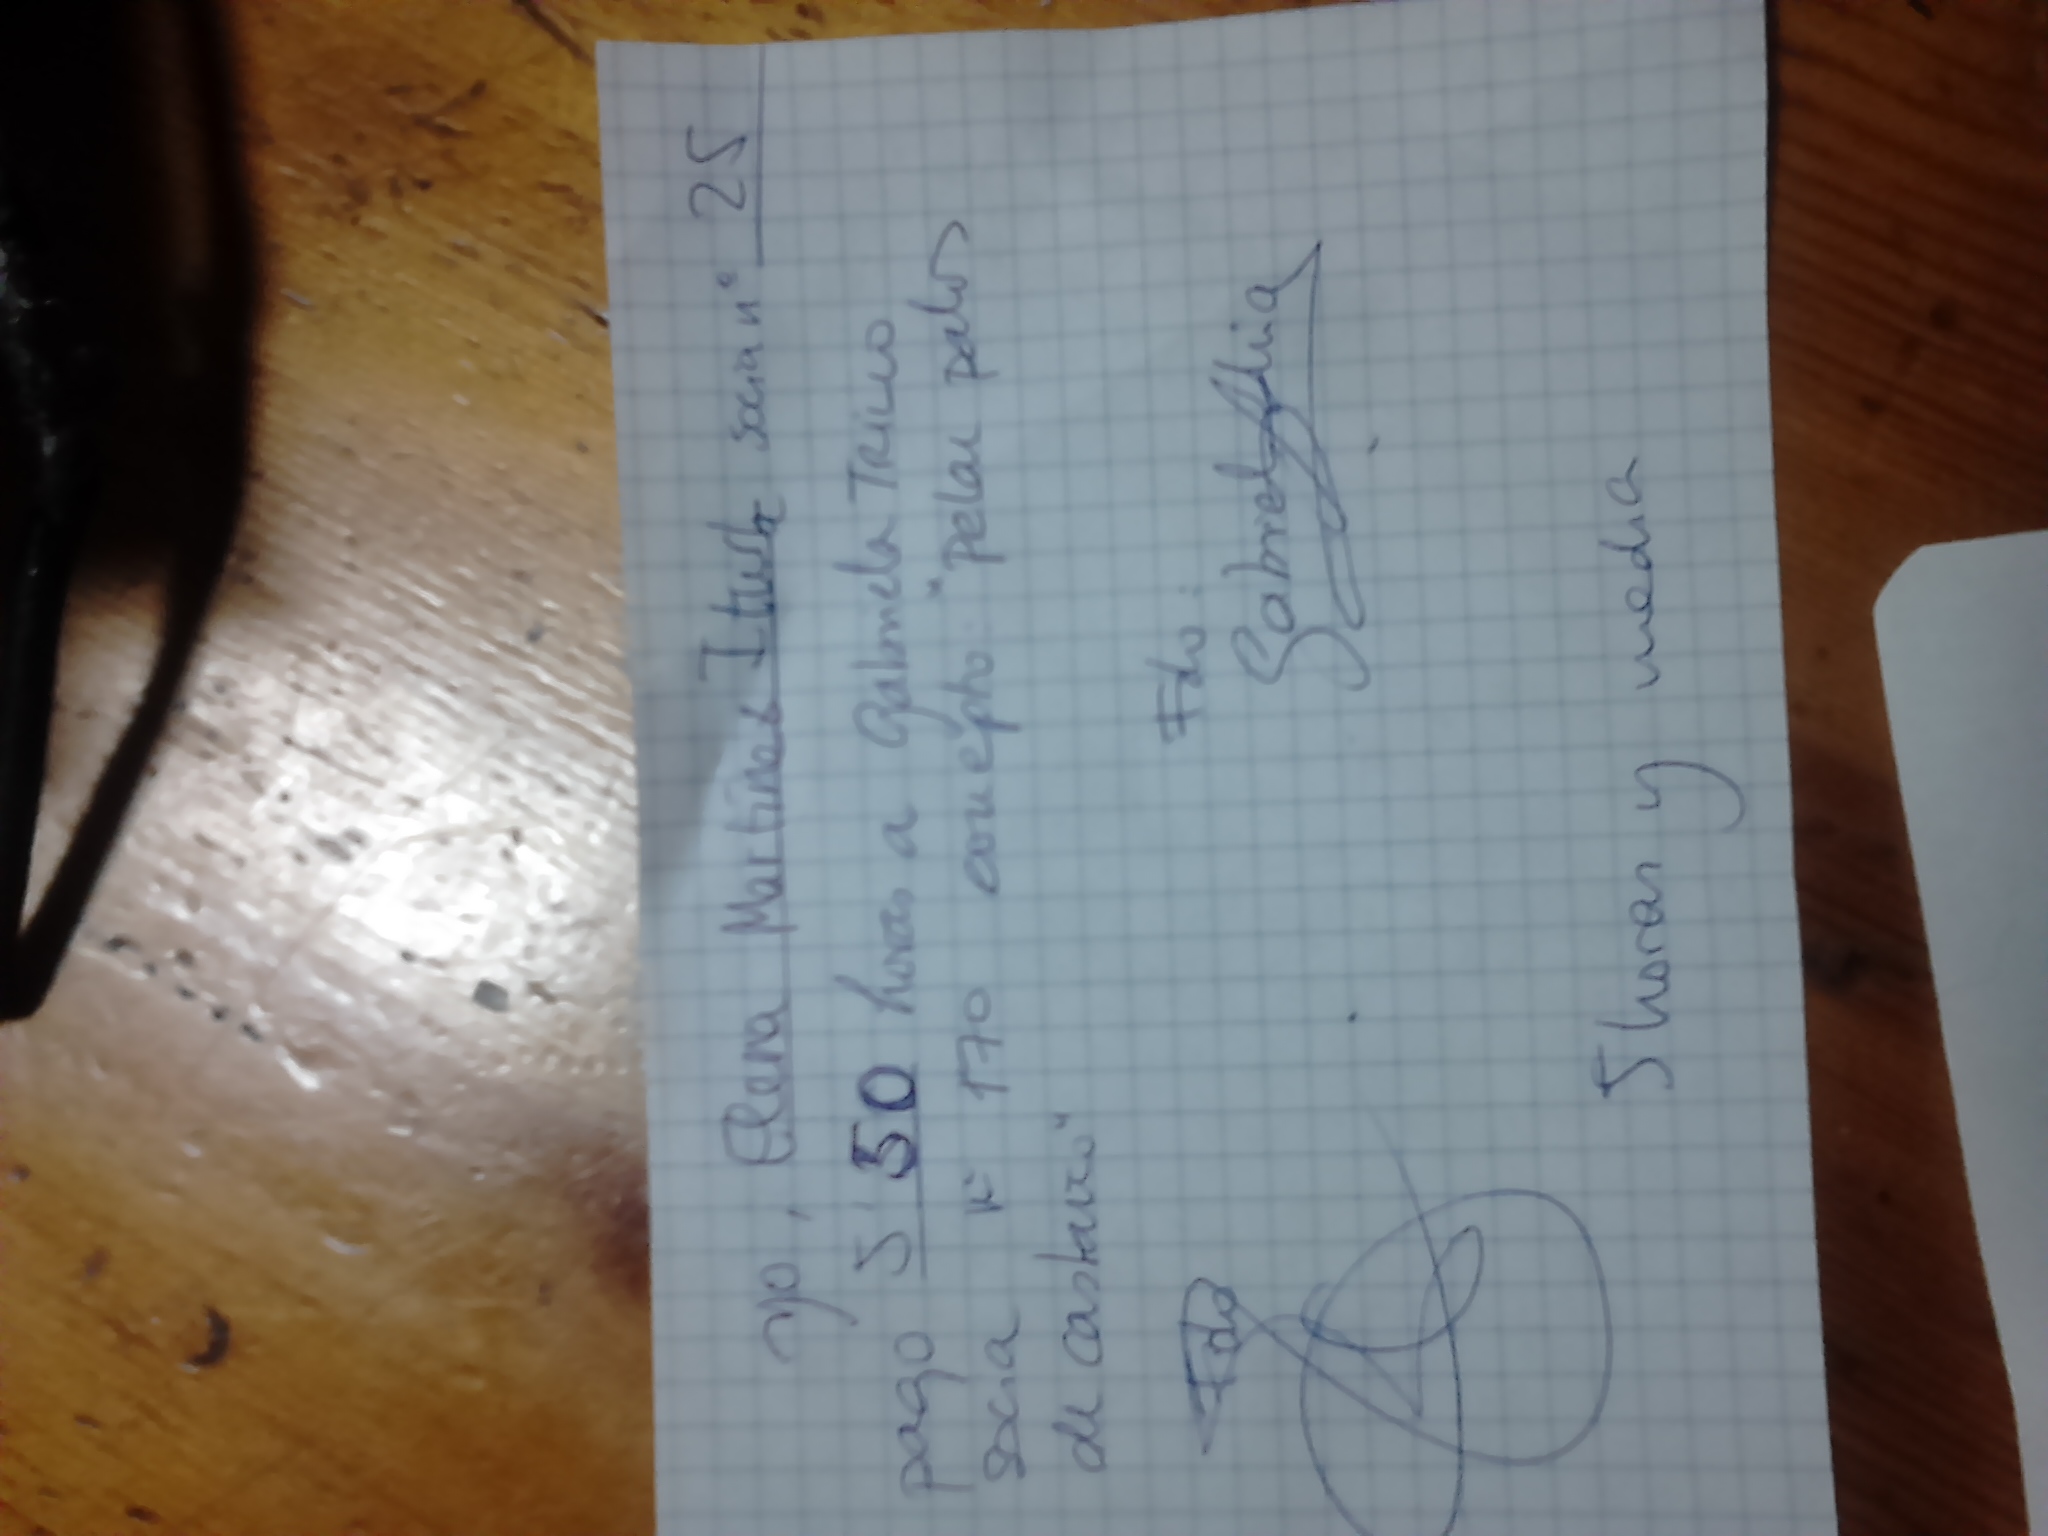 yo, Elena Martinez Iturbe socia nº 25
pago 5'50 horas a Gabriela
socia nº 170 concepto: "pelar palos
de castaño"
Fdo
Fdo:
Gabriela
5 horas y media